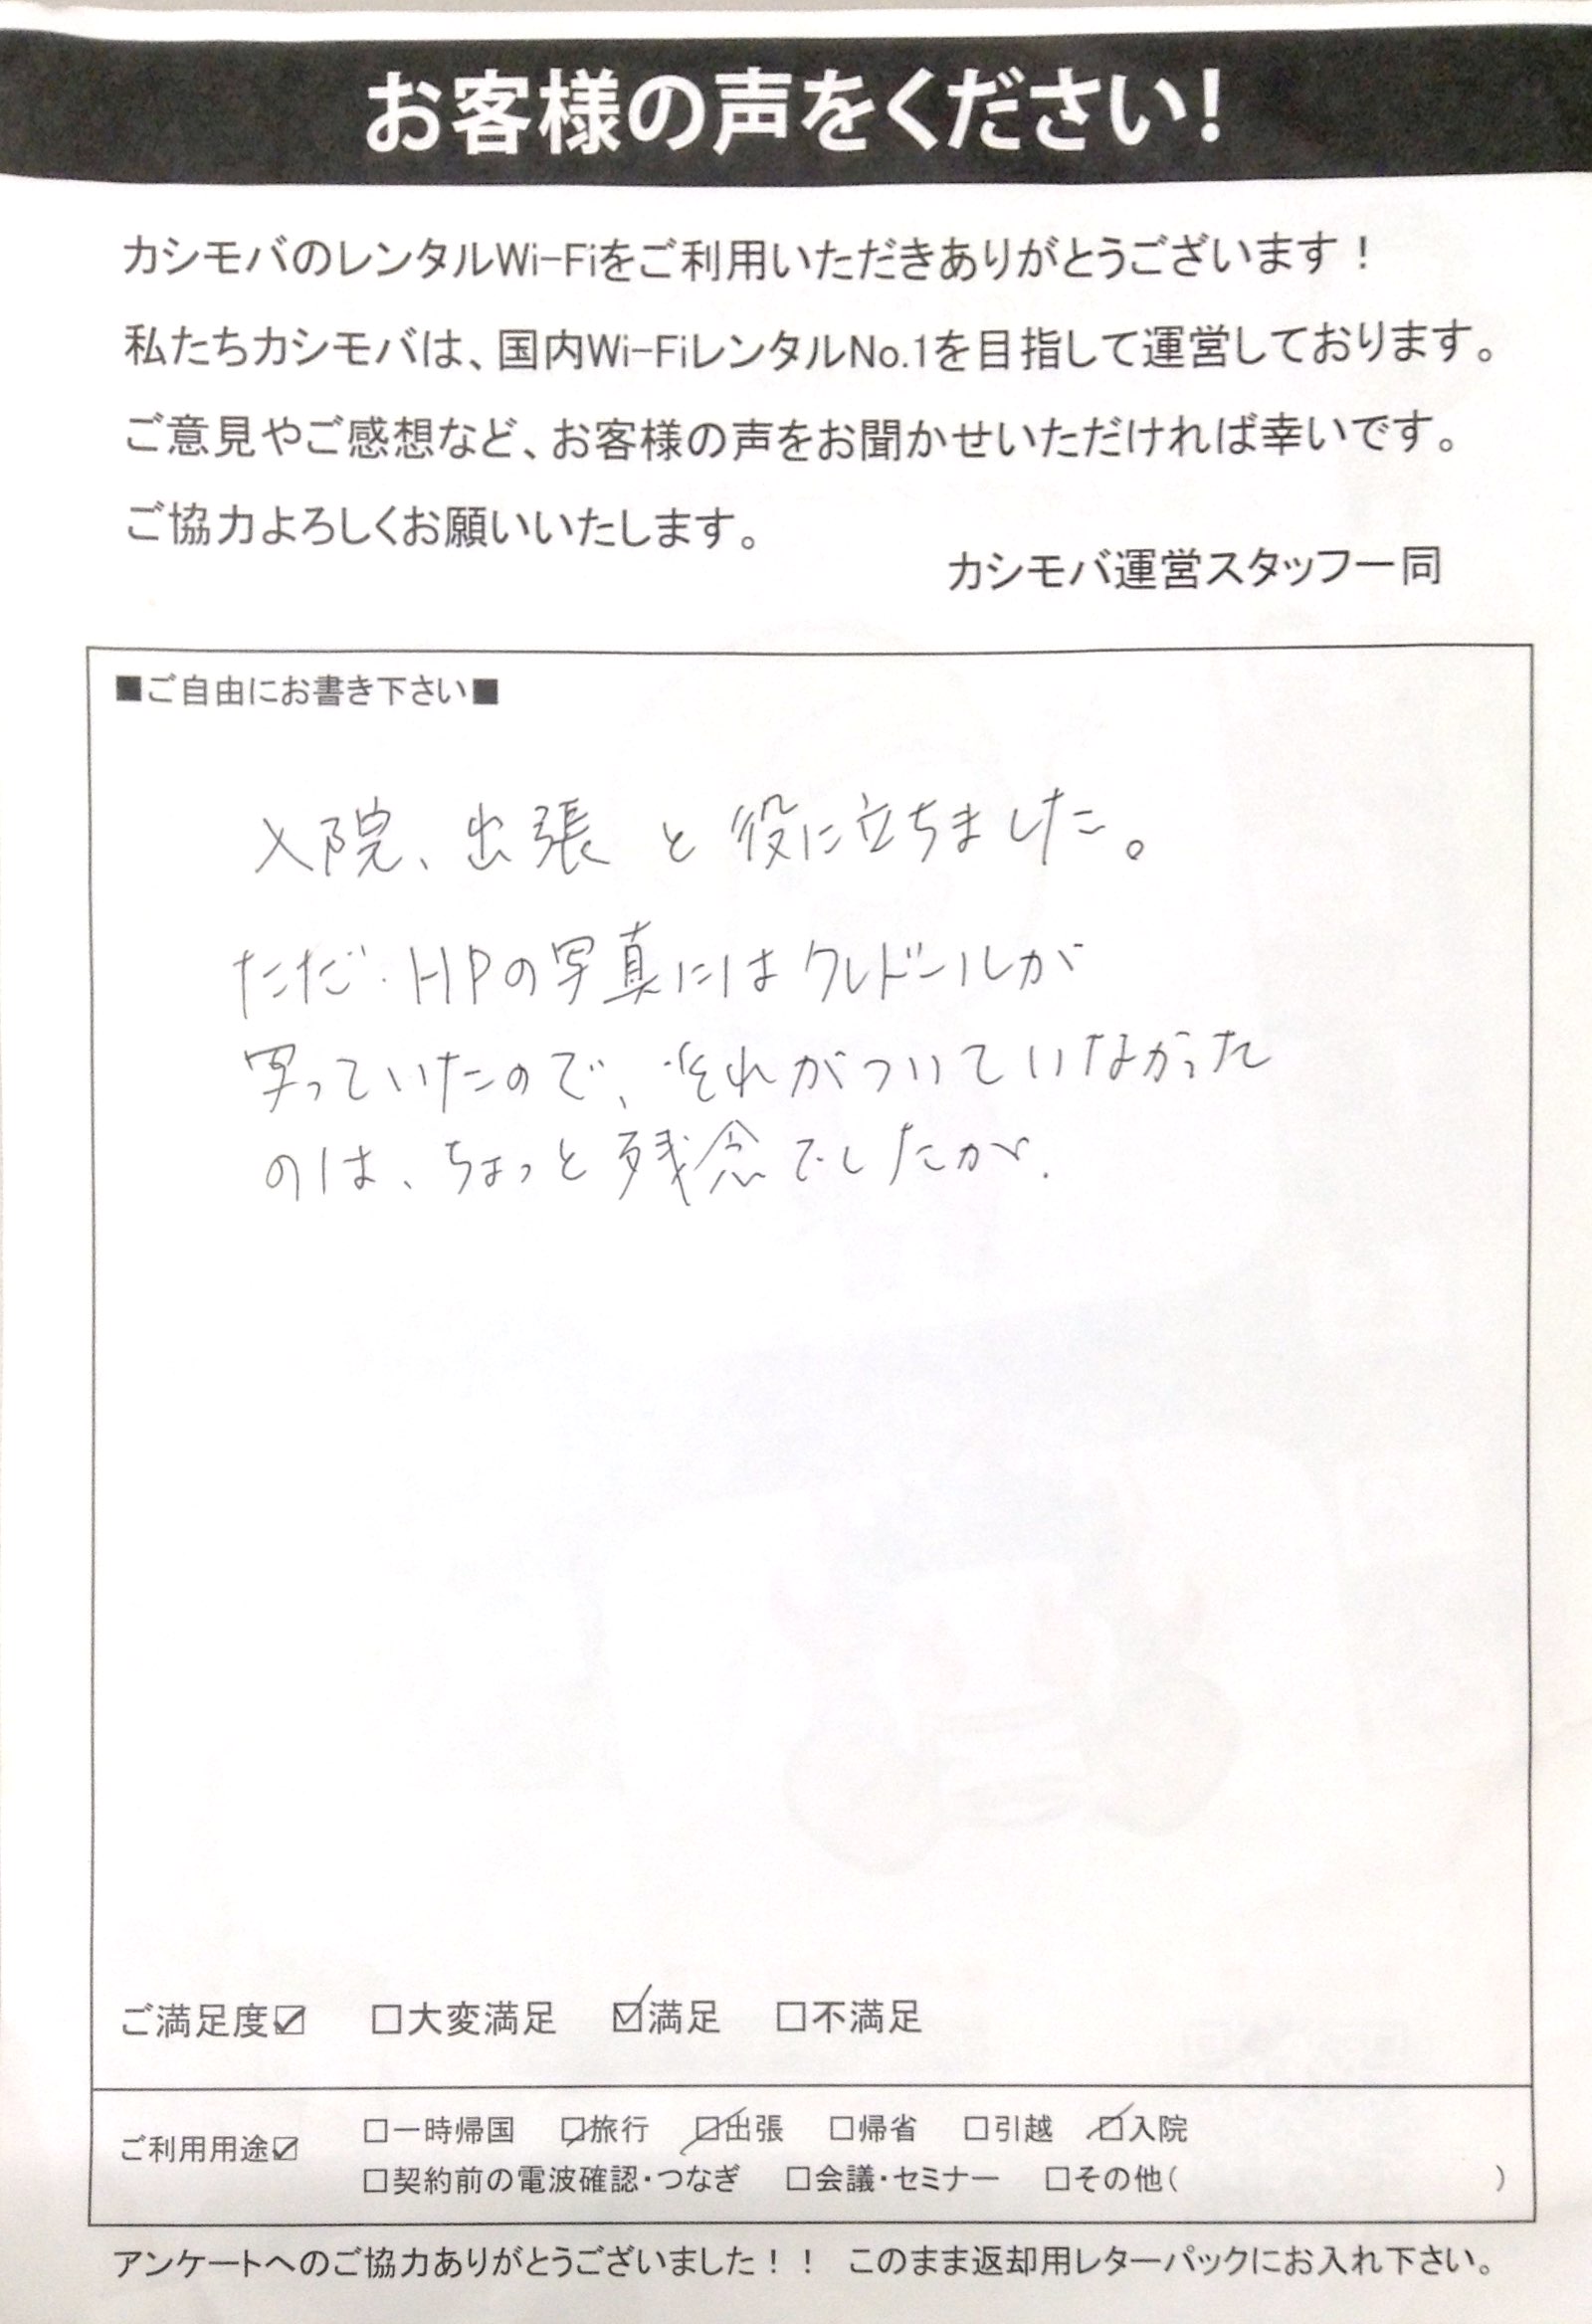 お客様の声をください!
カシモバのレンタルWi-Fiをご利用いただきありがとうございます！
私たちカシモバは、国内Wi-FiレンタルNo.1を目指して運営しております。
ご意見やご感想など、お客様の声をお聞かせいただければ幸いです。
ご協力よろしくお願いいたします。
カシモバ運営スタッフ一同
■ご自由にお書き下さい■
入院、出張 と 役に立ちました。
ただ、HPの写真にはクレドールが
写っていたので、それがついていなかった
のは、ちょっと残念でしたが.
ご満足度☑ □大変満足 ☑満足 □不満足
ご利用用途☑ □一時帰国 ☑旅行 ☑出張 □帰省 □引越 ☑入院
□契約前の電波確認・つなぎ □会議・セミナー □その他( )
アンケートへのご協力ありがとうございました！！ このまま返却用レターパックにお入れ下さい。